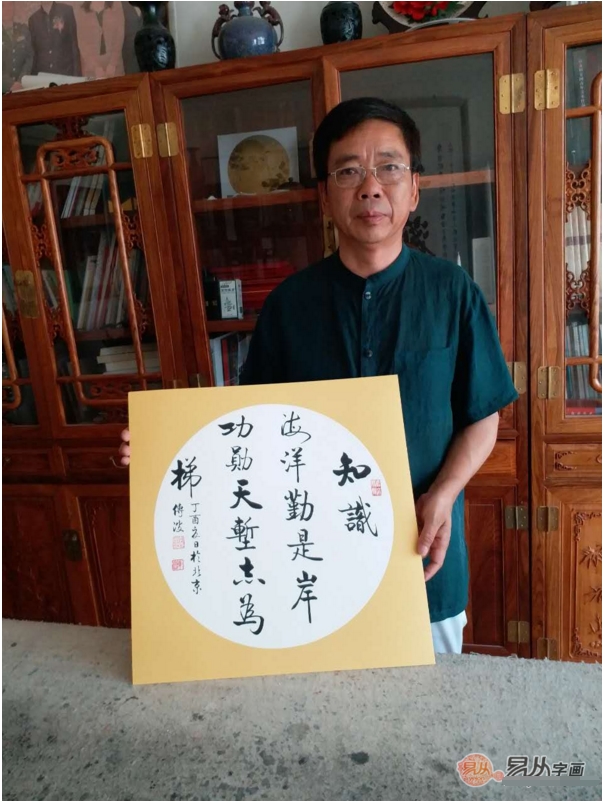 知識
海洋勤是岸
功勋天塹志為
梯
丁酉夏日於北京
易从
易从字画